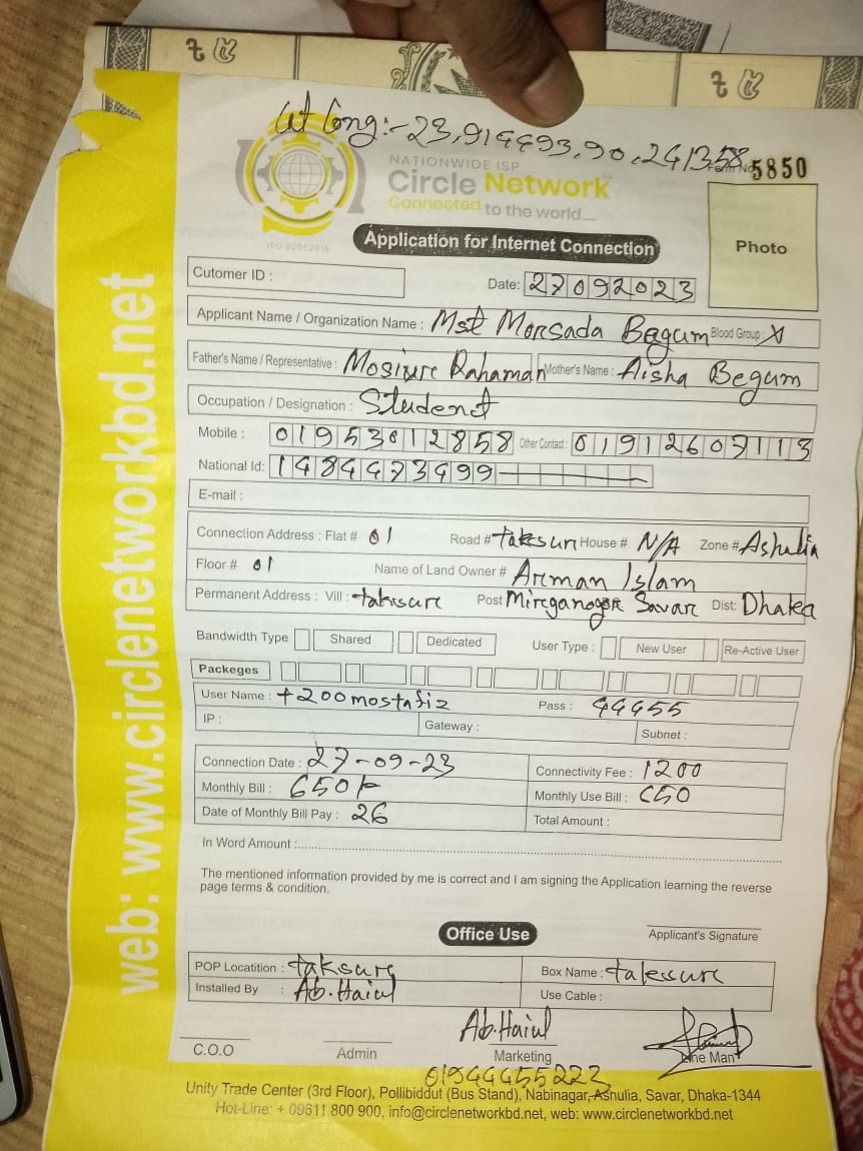 Lat Long:-23,914493,90,241358
Form No 5850
NATIONWIDE ISP
Circle Network
Connected to the world....
ISO 9001:2015
Application for Internet Connection
Photo
Cutomer ID :
Date: 27092023
Applicant Name / Organization Name : Mst Morsada Begum Blood Group : X
Father's Name / Representative : Mosiure Rahaman Mother's Name : Aisha Begum
Occupation / Designation : Student
Mobile : 01953012858 Other Contact : 01912607113
National Id: 1484473499
E-mail :
Connection Address : Flat # 01 Road # taksur House # N/A Zone # Ashulia
Floor # 01 Name of Land Owner # Arman Islam
Permanent Address : Vill : taksure Post Mireganogor Savar Dist: Dhaka
Bandwidth Type Shared Dedicated User Type : New User Re-Active User
Packeges
User Name : t200mostafiz Pass : 44455
IP : Gateway : Subnet :
Connection Date : 27-09-23 Connectivity Fee : 1200
Monthly Bill : 650/- Monthly Use Bill : 650
Date of Monthly Bill Pay : 26 Total Amount :
In Word Amount :
The mentioned information provided by me is correct and I am signing the Application learning the reverse
page terms & condition.
Applicant's Signature
Office Use
POP Locatition : taksure Box Name : takssure
Installed By : Ab.Haiul Use Cable :
Ab.Haiul
C.O.O Admin Marketing Line Man
01944455223
Unity Trade Center (3rd Floor), Pollibiddut (Bus Stand), Nabinagar, Ashulia, Savar, Dhaka-1344
Hot-Line: + 09611 800 900, info@circlenetworkbd.net, web: www.circlenetworkbd.net
web: www.circlenetworkbd.net